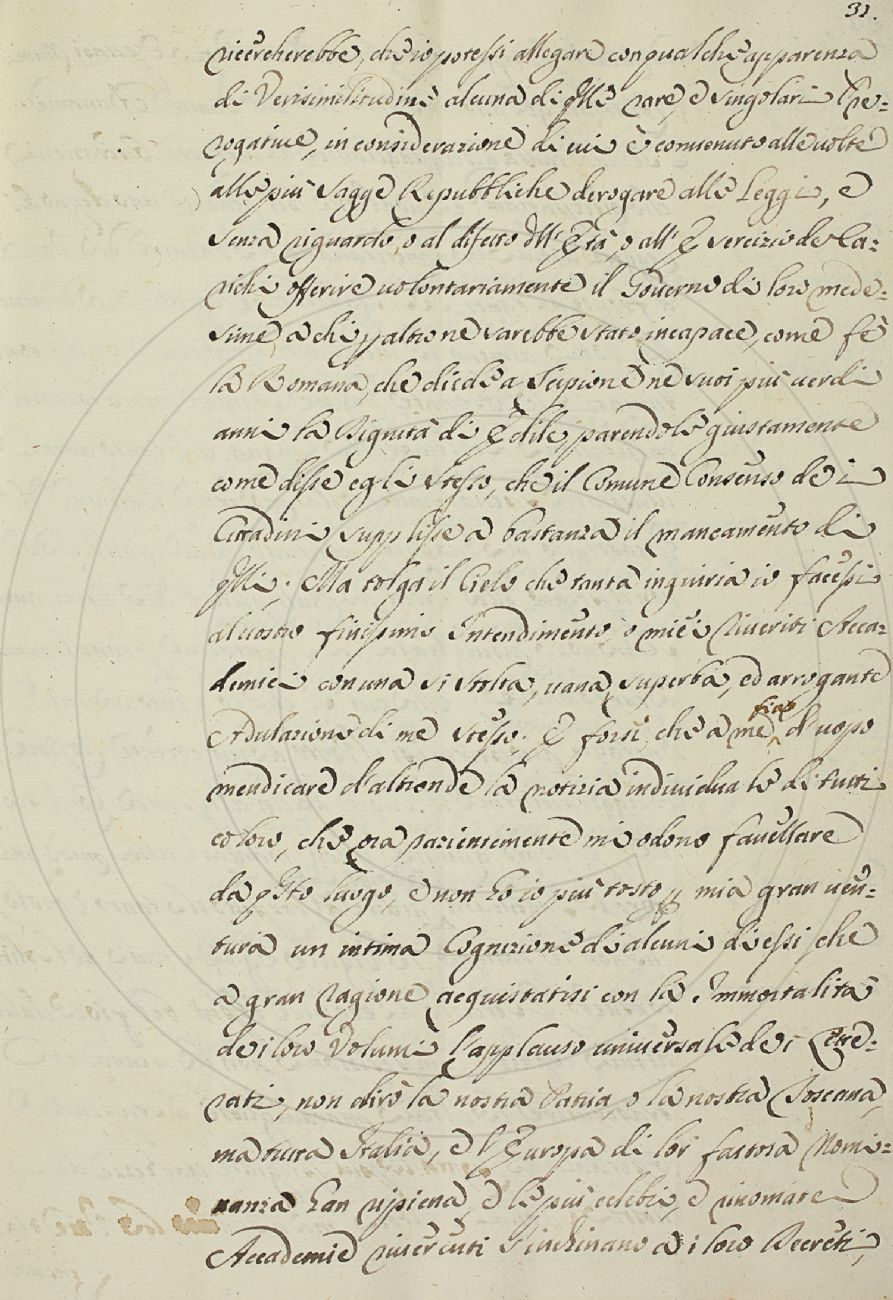 31.
ricercherebbe, che io potessi allegare con qualche apparenza
di Verisimilitudine alcuna di qlle rare, e singolari Pre=
rogative, in considerazione di cui è convenuto alle volte
alle più sagge Repubbliche derogare alle Leggi, e
senza riguardo, o al difetto dll' Età, o all' Esercizio de Ca=
richi offerire volontariamente il Governo di loro mede=
sime a chi p altro ne sarebbe stato incapace, come fè
la Romana, che diede a Scipione ne suoi più verdi
anni la Dignità di Edile, parendole giustamente
come disse egli stesso, che il Comune Consenso de i
Cittadini supplisse a bastanza il mancamento di
qlli. Ma tolga il Cielo che tanta ingiuria io facessi
al vostro finissimo Intendimento, o miei Riveriti Acca=
demici con una sì stolta, vana, superba, ed arrogante
Adulazione di me stesso. E forsi, che a me fia d'uopo
mendicare d'altronde la notizia individuale di tutti
coloro, che ora pazientemente mi odono favellare
da qsto luogo, e non ho io più tosto p mia gran ven=
tura un intima Cognizione di alcuni di essi, che
a gran ragione acquistatisi con la Immortalità
de i loro Volumi l'applauso universale de i Lette=
rati, non dirò la nostra Patria, o la nostra Toscana,
ma tutta Italia, e l'Europa di lor fastosa Nomi=
nanza han ripiena, e le più celebri, e rinomate
Accademie riverenti s'inchinano a i loro Decreti,